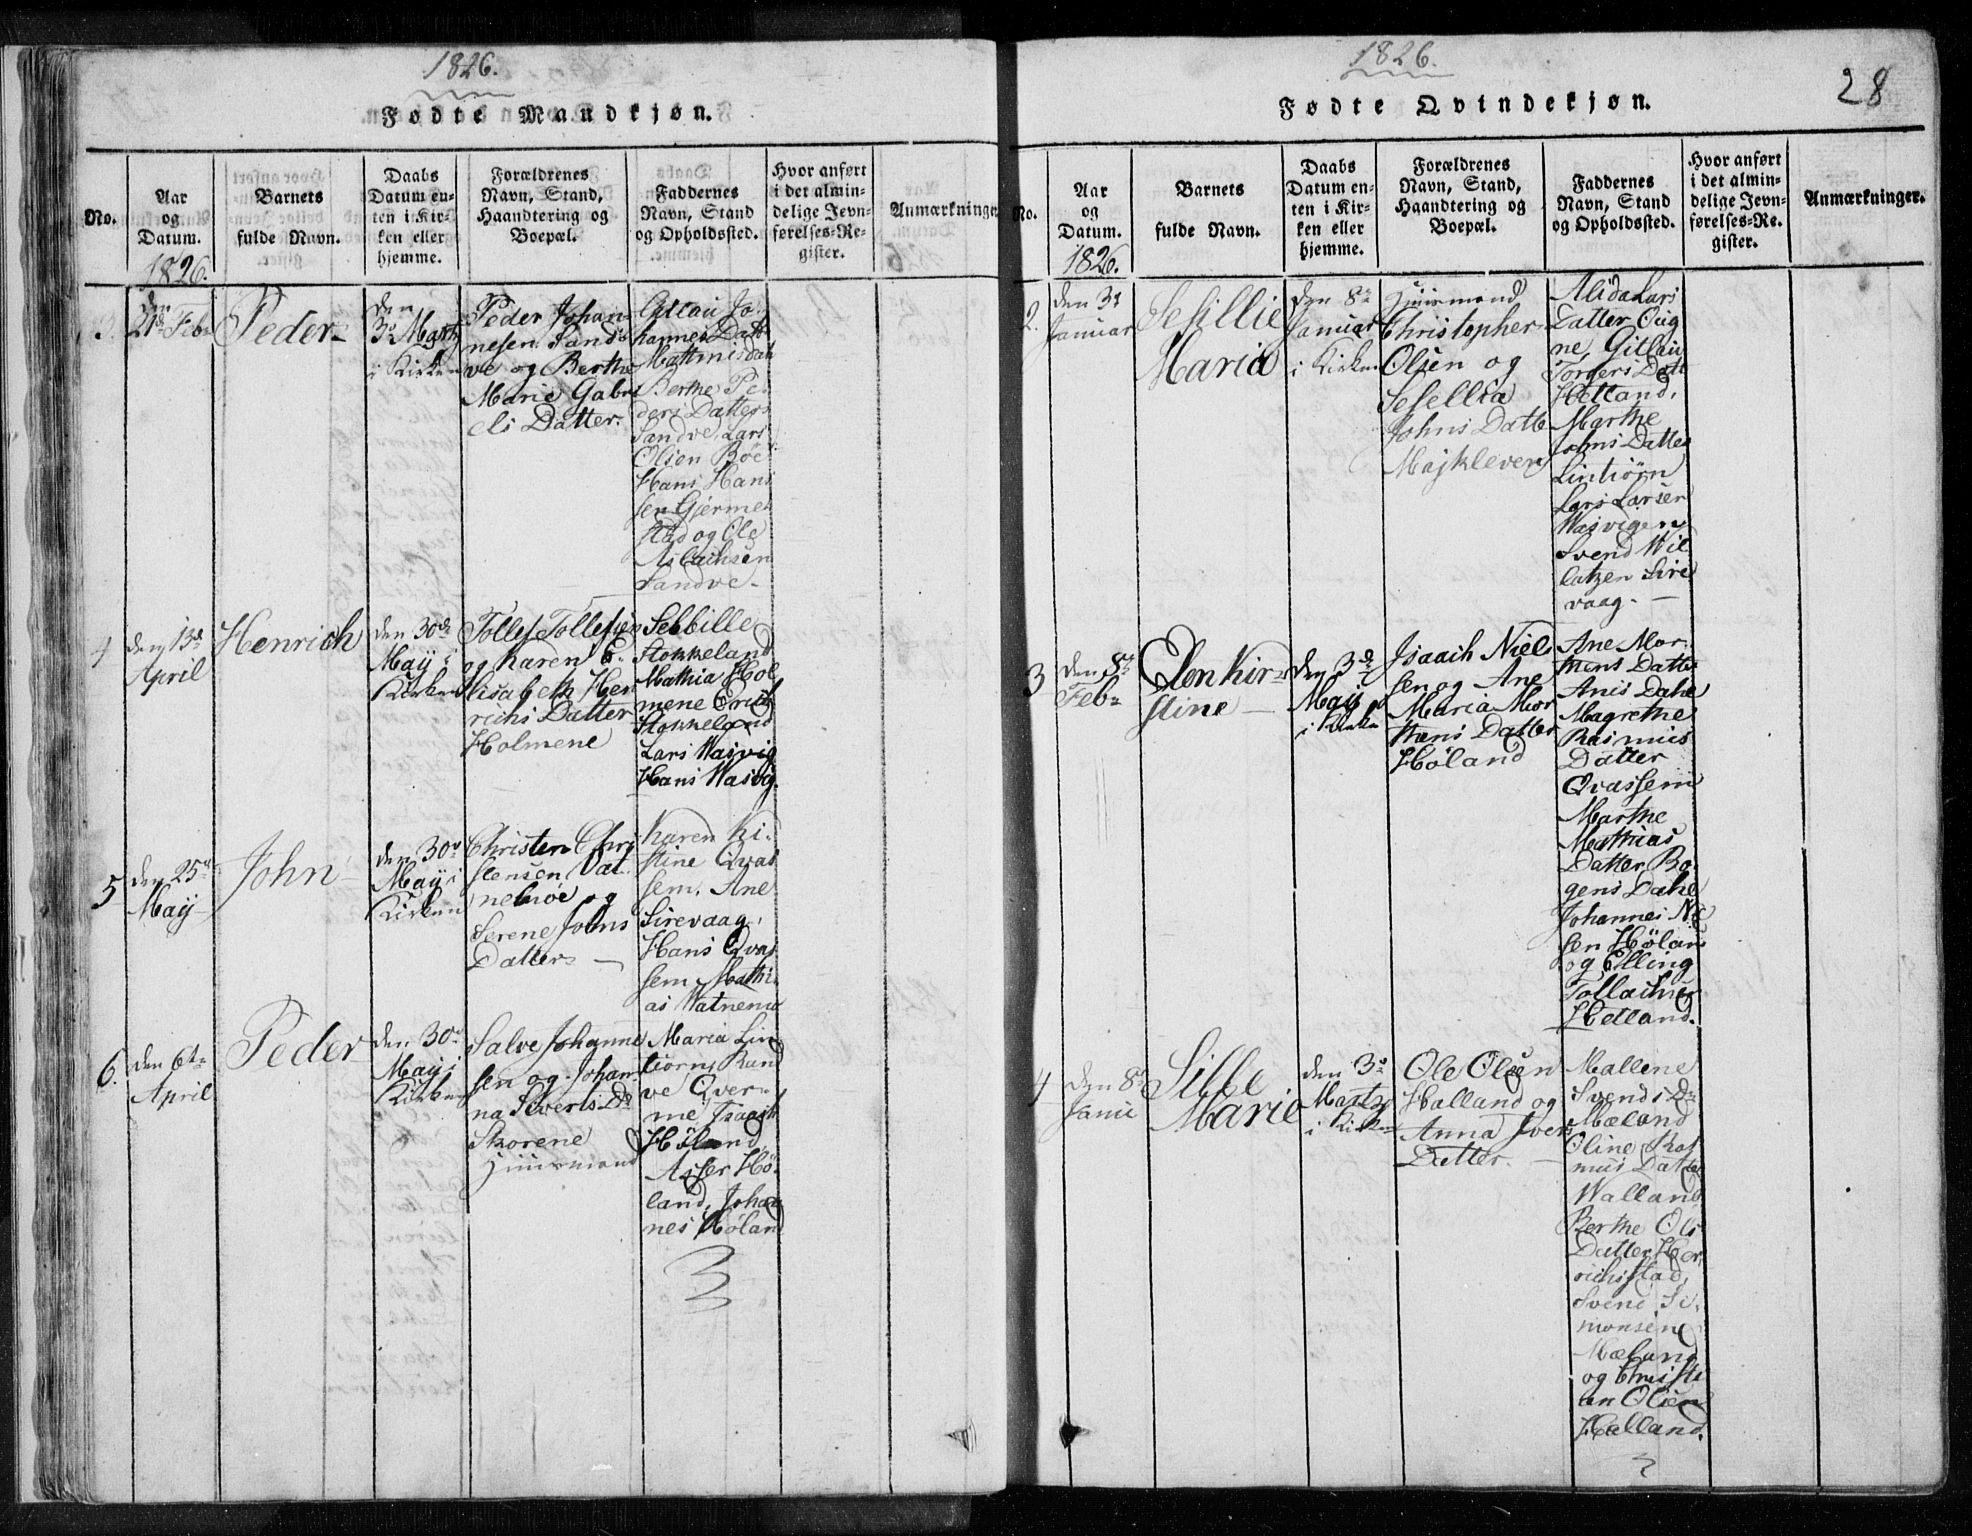 1826.
Fødte Mandkjøn.
No.
Aar
og
Datum.
1826.
Barnets
fulde Navn.
Daabs
Datum en-
ten i Kir-
ken eller
hjemme.
Forældrenes
Navn, Stand,
Haandtering og
Boepæl.
Faddernes
Navn, Stand
og Opholdssted.
Hvor anført
i det almin-
delige Jevn-
førelses-Re-
gister.
Anmærkninger
3.
den
21de Feb
Peder
den
3de Martz
i Kirken
Peder Johan-
nesen Sand-
ve og Berthe
Marie Gabri
els Datter.
Johannes Datt
Berthe Pe-
ders Datter
Sandve, Lars
Olsen Böe
Hans Hans
sen Gjerme
stad og Ole
Aslachsen
Sandve
4
den 13de
April
Henrich
den 30de
Maÿ i
Kirken
Tollef Tollefsen
og Karen E-
lisabeth Hen
richs Datter
Holmene
Sebbille
Stokkeland
Mathia Hol
mene Erich
Stokkeland
Lars Wasvig
Hans Wasvig.
5
den 25de
Maÿ
John
den 30de
Maÿ i
Kirken
Christen Chri
stensen Vat
neboe og
Serene Johns
Datter
Karen Ki-
stine Qvas
sem, Ane
Sirevaag,
Hans Qvas
sem, Mathi-
as Watnemo
6.
den 6te
April
Peder
den 30de
Maÿ i
Kirken
Salve Johanne
sen og Johan-
na Siverts Dr
Skorene
Huusmand
Maria Lin
tiörn, Ran
ve Qver-
me, Isaach
Höland
Asser Hö-
land, Johan
nes Höland
1826.
28
Fødte Qvindekjøn.
No.
Aar
og
Datum.
1826.
Barnets
fulde Navn.
Daabs
Datum en-
ten i Kir-
ken eller
hjemme.
Forældrenes
Navn, Stand,
Haandtering og
Boepæl.
Faddernes
Navn, Stand
og Opholdssted.
Hvor anført
i det almin-
delige Jevn-
førelses-Re-
gister.
Anmærkninger.
2.
den 3de
Januar
Sesillie
Maria
den 8de
Januar
i Kirken
Huusmand
Christopher
Olsen og
Sesellia
Johns Datt
Majkleven
Alida Lars
Datter Oug
ne, Gitlau
Torgers Datt
Hetland,
Marthe
Johns Datter
Lintiörn
Lars Larsen
Wasvigen
Svend Wil
latzen Sire
vaag.
3
den 8de
Feb
Elen Kir-
stine
den 3de
Maÿ
i Kirken
Isaach Niels
sen og Ane
Maria Mor
tens Datter
Höland
Ane Mor-
tens Datter
Anis Dahe
Magrethe
Rasmus
Datter
Qvassem
Marthe
Mathias
Datter, Ro-
gens Dahe
Johannes Ni
sen Hölan
og Elling
Tollachsen
Hetland.
4
den 8de
Janu
Sille
Marie
den 3de
Martz
i Kirken
Ole Olsen
Halland og
Anna Ivers
Datter.
Mallene
Svends Dr
Mæland
Oline Ras
mus Datter
Walland
Berthe Ols
Datter Hen
richstad,
Svend Si-
monsen
Mæland
og Christi
an Olsen
Halland.